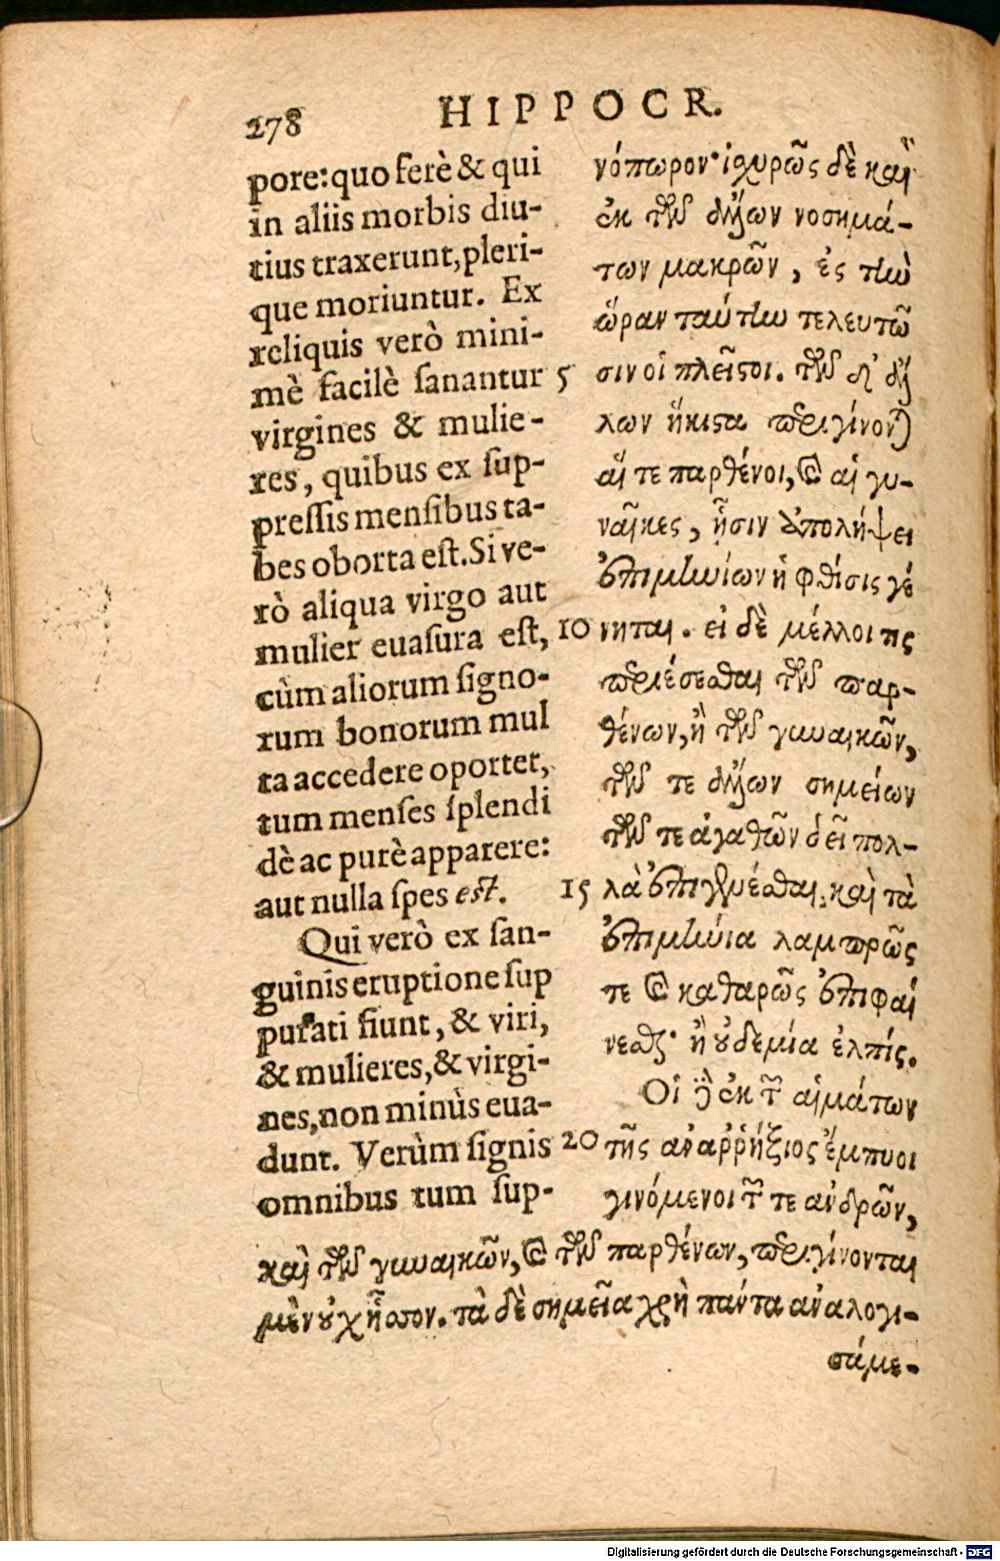 278
HIPPOCR.
pore: quo ferè & qui
in aliis morbis diu-
tius traxerunt, pleri-
que moriuntur. Ex
reliquis verò mini-
mè facilè sanantur
virgines & mulie-
res, quibus ex sup-
pressis mensibus ta-
bes oborta est. Si ve-
rò aliqua virgo aut
mulier euasura est,
cùm aliorum signo-
rum bonorum mul
ta accedere oportet,
tum menses splendi
dè ac purè apparere:
aut nulla spes est.
Qui verò ex san-
guinis eruptione sup
purati fiunt, & viri,
& mulieres, & virgi-
nes, non minùs eua-
dunt. Verùm signis
omnibus tum sup-
νόπωρον· ἰχυρῶς δὲ καὶ
ἐκ τῶν ἄλλων νοσημά-
των μακρῶν, ἐς τὴν
ὥραν ταύτην τελευτῶ
σιν οἱ πλεῖστοι. τῶν δ' ἄλ
5
λων ἥκιστα περιγίνονται
αἵ τε παρθένοι, καὶ αἱ γυ-
ναῖκες, ᾗσιν ἀπολήψει
ἐπιμηνίων ἡ φθίσις γέ
νηται. εἰ δὲ μέλλοι τις
10
περιέσεσθαι τῶν παρ-
θένων, ἢ τῶν γυναικῶν,
τῶν τε ἄλλων σημείων
τῶν τε ἀγαθῶν δεῖ πολ-
λὰ ἐπιγενέσθαι, καὶ τὰ
15
ἐπιμήνια λαμπρῶς
τε καὶ καθαρῶς ἐπιφαί
νεσθαι· ἢ οὐδεμία ἐλπίς.
Οἱ δὲ ἐκ τῶν αἱμάτων
τῆς ἀναῤῥήξιος ἔμπυοι
20
γινόμενοι τῶν τε ἀνδρῶν,
καὶ τῶν γυναικῶν, καὶ τῶν παρθένων, περιγίνονται
μὲν οὐχ ἧσσον. τὰ δὲ σημεῖα χρὴ πάντα ἀναλογι-
σάμε-
Digitalisierung gefördert durch die Deutsche Forschungsgemeinschaft - DFG